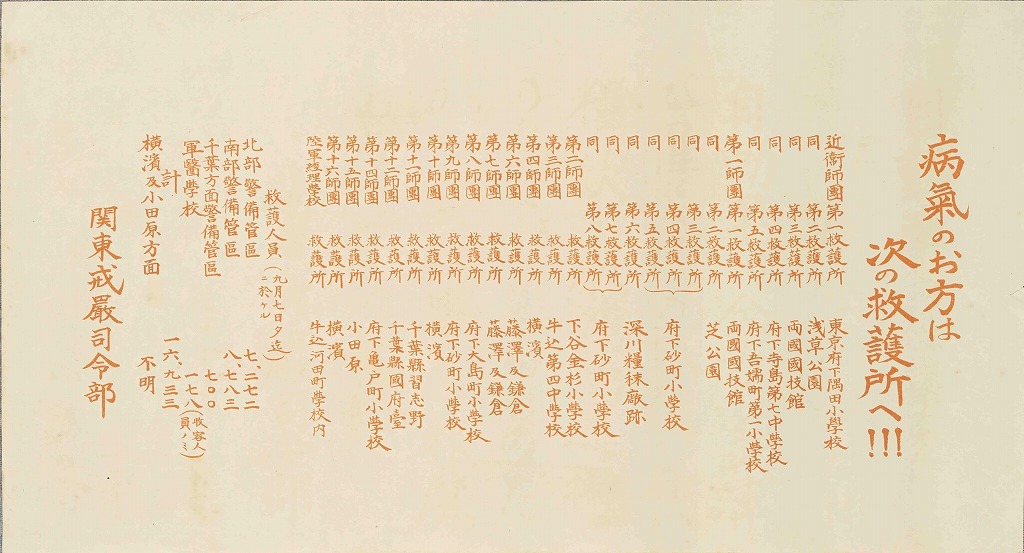 病氣のお方は
次の救護所へ!!!
近衞師團 第一救護所 東京府下隅田小學校
同 第二救護所 浅草公園
同 第三救護所 両國國技館
同 第四救護所 府下寺島第七中學校
同 第五救護所 府下吾嬬町第一小學校
第一師團 第一救護所 両國國技館
同 第二救護所 芝公園
同 第三救護所
同 第四救護所 府下砂町小學校
同 第五救護所
同 第六救護所 深川糧秣廠跡
同 第七救護所 府下砂町小學校
同 第八救護所
第二師團 救護所 下谷金杉小學校
第三師團 救護所 牛込第四中學校
第四師團 救護所 横濱
第六師團 救護所 藤澤及鎌倉
第七師團 救護所 藤澤及鎌倉
第八師團 救護所 府下大島町小學校
第九師團 救護所 府下砂町小學校
第十師團 救護所 横濱
第十一師團 救護所 千葉縣習志野
第十二師團 救護所 千葉縣國府臺
第十四師團 救護所 府下亀戸町小學校
第十五師團 救護所 小田原
第十六師團 救護所 横濱
陸軍経理學校 救護所 牛込河田町學校内
救護人員(九月七日夕迄ニ於ケル)
北部警備管區 七、二七二
南部警備管區 八、七八三
千葉方面警備管區 七〇〇
軍醫學校 一七八(收容人員ノミ)
計 一六、九三三
横濱及小田原方面 不明
関東戒嚴司令部